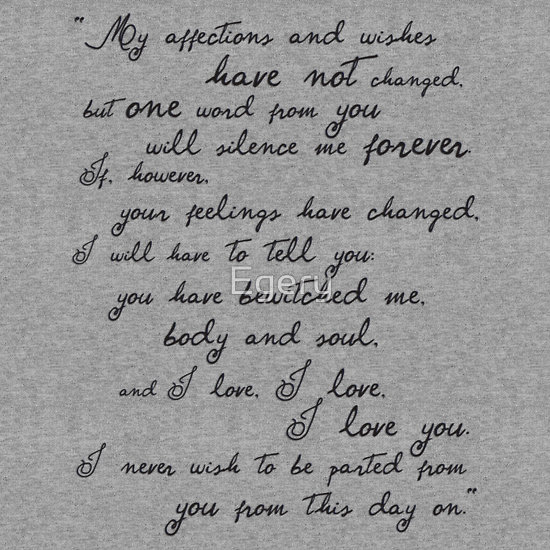 "My affections and wishes
have not changed,
but one word from you
will silence me forever.
If, however,
your feelings have changed,
I will have to tell you:
you have bewitched me,
body and soul,
and I love, I love,
I love you.
I never wish to be parted from
you from this day on."
Egery